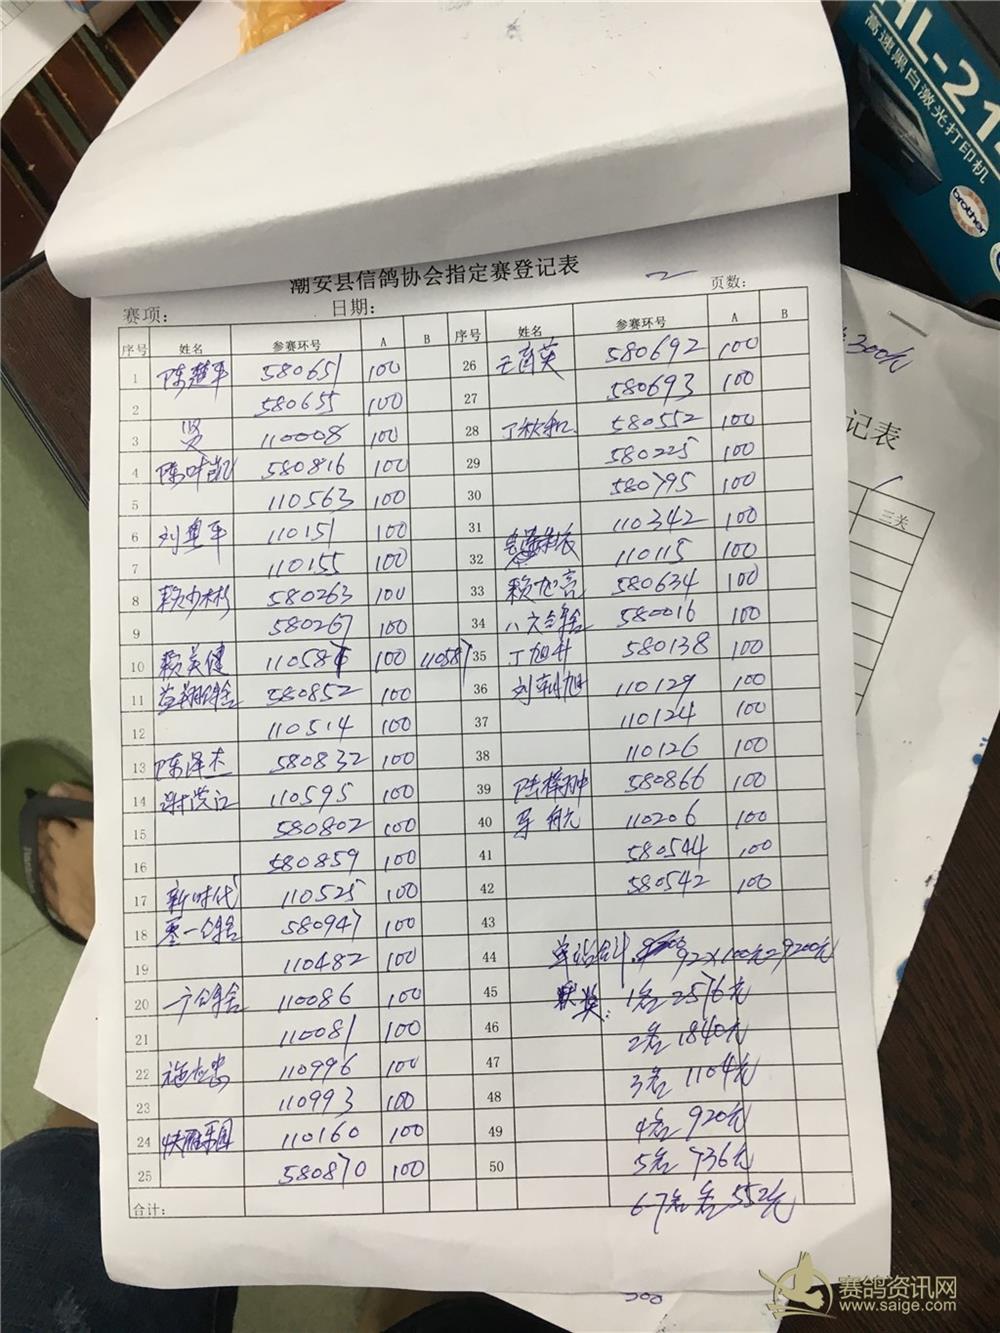 AL-21
高速黑白激光打印机
brother
300元
记表
三关
潮安县信鸽协会指定赛登记表
2
赛项: 日期: 页数:
序号 姓名 参赛环号 A B 序号 姓名 参赛环号 A B
1 陈楚平 580651 100 26 580692 100
2 580655 100 27 580693 100
3 贤 110008 100 28 580552 100
4 陈叶凯 580816 100 29 580225 100
5 110563 100 30 580795 100
6 110151 100 31 110342 100
7 110155 100 32 110115 100
8 赖少彬 580263 100 33 赖旭亮 580634 100
9 580267 100 34 八六鸽舍 580016 100
10 赖英健 100 11058 35 丁旭升 580138 100
11 580852 100 36 刘朝旭 110129 100
12 110514 100 37 110124 100
13 陈泽杰 580832 100 38 110126 100
14 谢洪江 110595 100 39 580866 100
15 580802 100 40 航 110206 100
16 580859 100 41 580544 100
17 新时代 110525 100 42 580542 100
18 一鸽舍 580947 100 43
19 110482 100 44 单站合计 92×100元=9200元
20 鸽舍 110086 100 45 奖: 1名2576元
21 110081 100 46 2名1840元
22 110996 100 47 3名 1104元
23 110993 100 48
24 110160 100 49 4名 920元
25 580870 100 50 5名 736元
合计: 6-7名 名 552元
赛鸽资讯网
www.saige.com